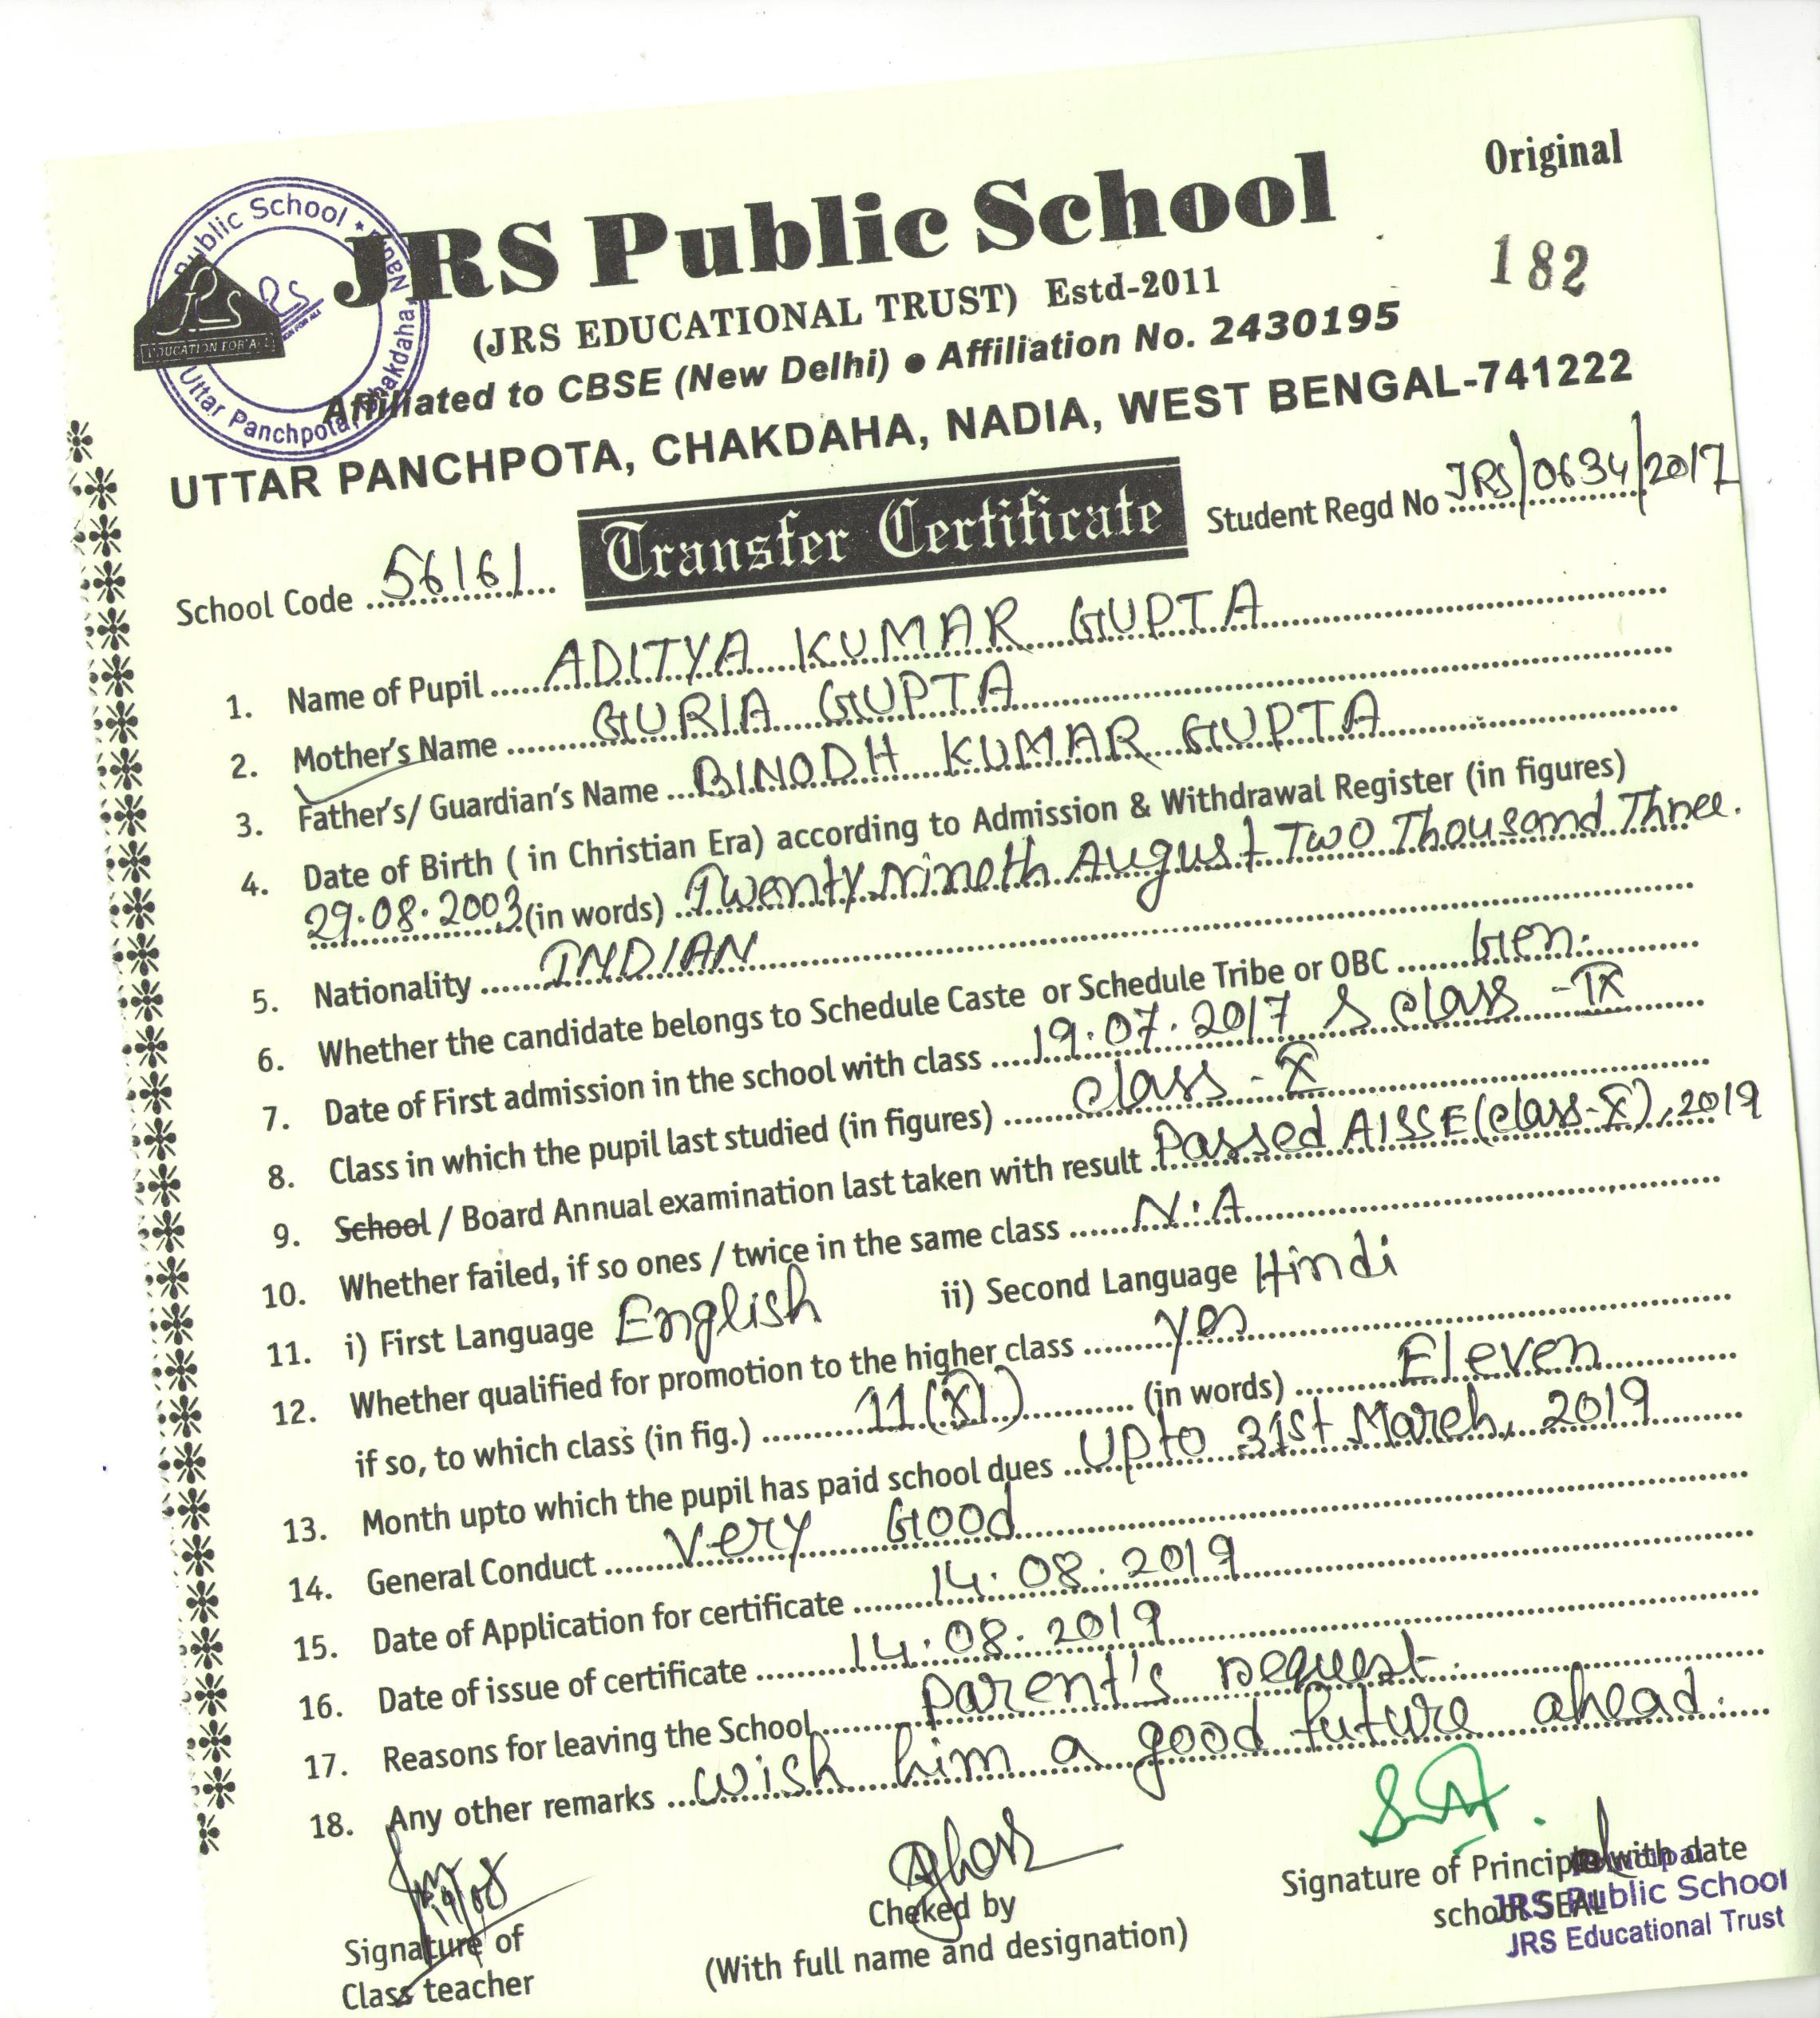 Original
JRS Public School
182
(JRS EDUCATIONAL TRUST) Estd-2011
Affiliated to CBSE (New Delhi) ● Affiliation No. 2430195
UTTAR PANCHPOTA, CHAKDAHA, NADIA, WEST BENGAL-741222
Public School * Nadia
Uttar Panchpota, Chakdaha,
JRS
EDUCATION FOR ALL
School Code 56161
Transfer Certificate
Student Regd No JRS/0634/2017
1. Name of Pupil ADITYA KUMAR GUPTA
2. Mother's Name GURIA GUPTA
3. Father's/ Guardian's Name BINODH KUMAR GUPTA
4. Date of Birth ( in Christian Era) according to Admission & Withdrawal Register (in figures)
29.08.2003 (in words) Twenty nineth August Two Thousand Three.
5. Nationality INDIAN
6. Whether the candidate belongs to Schedule Caste or Schedule Tribe or OBC Gen.
7. Date of First admission in the school with class 19.07.2017 & class - IX
8. Class in which the pupil last studied (in figures) class - X
9. School / Board Annual examination last taken with result Passed AISSE (class-X), 2019
10. Whether failed, if so ones / twice in the same class N.A
11. i) First Language English ii) Second Language Hindi
12. Whether qualified for promotion to the higher class yes
if so, to which class (in fig.) 11 (XI) (in words) Eleven
13. Month upto which the pupil has paid school dues Upto 31st March, 2019
14. General Conduct Very Good
15. Date of Application for certificate 14.08.2019
16. Date of issue of certificate 14.08.2019
17. Reasons for leaving the School parent's request.
18. Any other remarks wish him a good future ahead.
Signature of
Class teacher
Cheked by
(With full name and designation)
Signature of Principal with date
school SEAL
Principal
JRS Public School
JRS Educational Trust